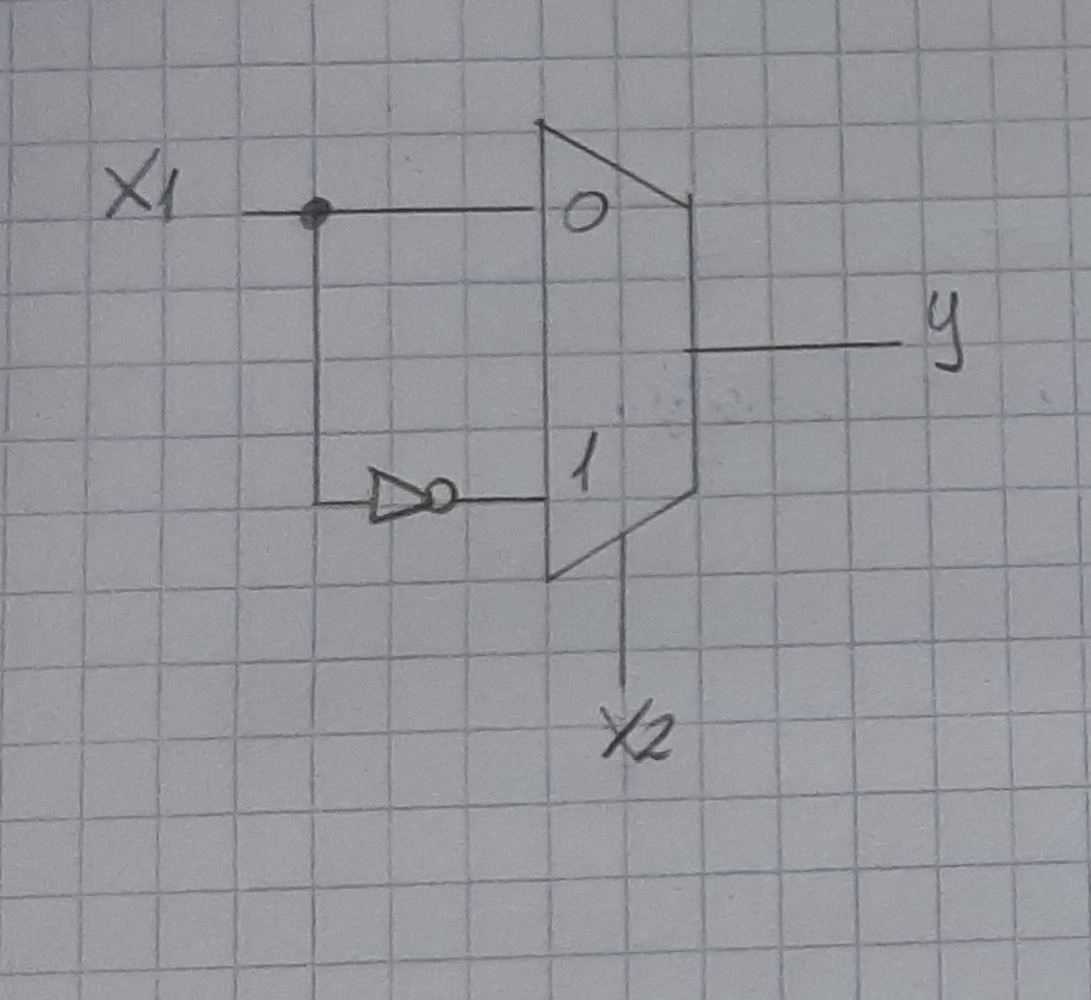 X1
0
y
1
X2